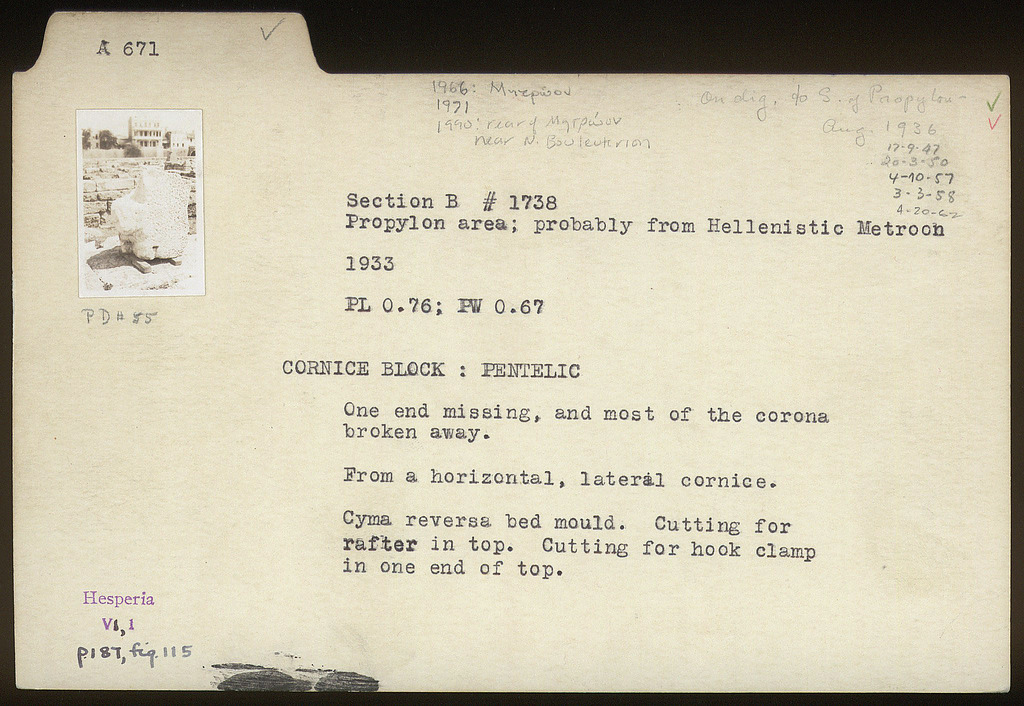 A 671
1966: Μητρώον
1971
1990: rear of Μητρώον
near N. Bouleuterion
On dig, to S. of Propylon
Aug. 1936
17-9-47
20-3-50
4-10-57
3-3-58
4-20-62
Section B # 1738
Propylon area; probably from Hellenistic Metroon
1933
PL 0.76; PW 0.67
PD# 55
CORNICE BLOCK : PENTELIC
One end missing, and most of the corona
broken away.
From a horizontal, lateral cornice.
Cyma reversa bed mould. Cutting for
rafter in top. Cutting for hook clamp
in one end of top.
Hesperia
VI, 1
p.187, fig. 115